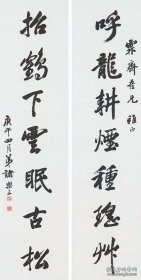 霖齋吾兄雅正
呼龍耕煙種瑤艸
招鶴下雲眠古松
庚午四月弟諸樂三